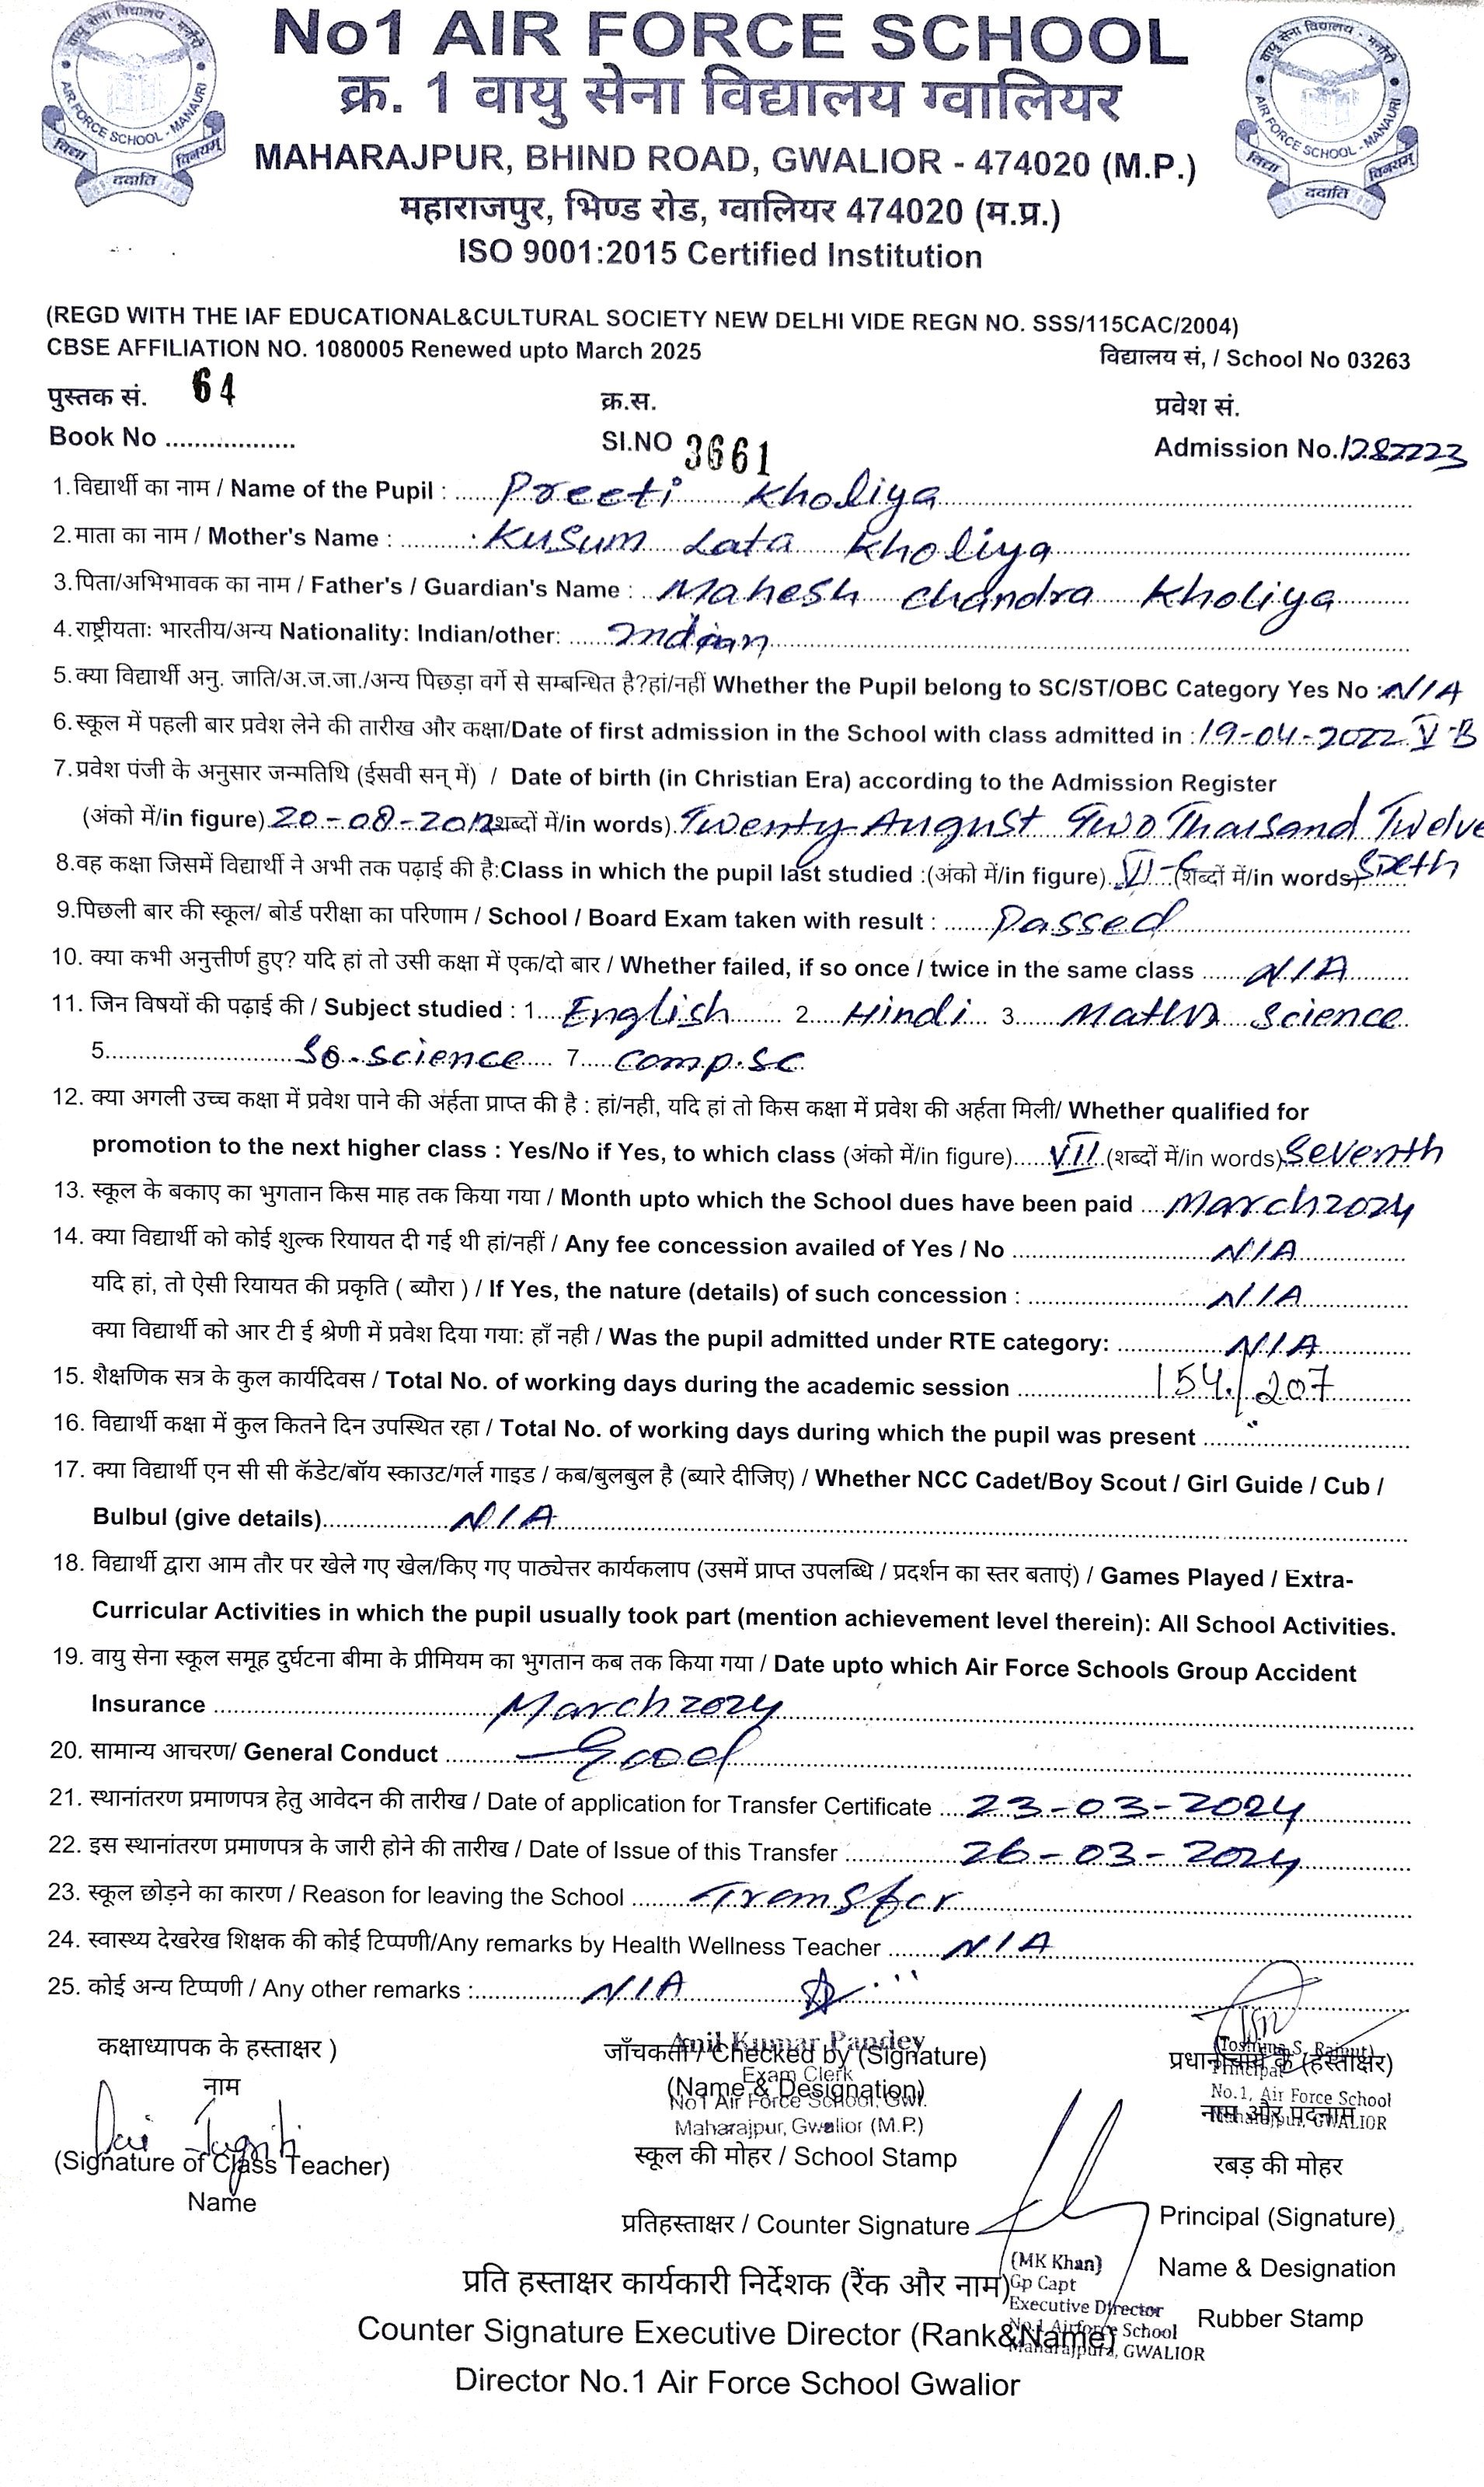 वायु सेना विद्यालय - मनौरी
AIR FORCE SCHOOL - MANAURI
विद्या ददाति विनयम्
No1 AIR FORCE SCHOOL
क्र. 1 वायु सेना विद्यालय ग्वालियर
MAHARAJPUR, BHIND ROAD, GWALIOR - 474020 (M.P.)
महाराजपुर, भिण्ड रोड, ग्वालियर 474020 (म.प्र.)
ISO 9001:2015 Certified Institution
वायु सेना विद्यालय - मनौरी
AIR FORCE SCHOOL - MANAURI
विद्या ददाति विनयम्
(REGD WITH THE IAF EDUCATIONAL&CULTURAL SOCIETY NEW DELHI VIDE REGN NO. SSS/115CAC/2004)
CBSE AFFILIATION NO. 1080005 Renewed upto March 2025 विद्यालय सं, / School No 03263
पुस्तक सं. 64 क्र.स. प्रवेश सं.
Book No .................. SI.NO 3661 Admission No.1282223
1.विद्यार्थी का नाम / Name of the Pupil : Preeti Kholiya
2.माता का नाम / Mother's Name : Kusum Lata Kholiya
3.पिता/अभिभावक का नाम / Father's / Guardian's Name : Mahesh Chandra Kholiya
4.राष्ट्रीयताः भारतीय/अन्य Nationality: Indian/other: Indian
5.क्या विद्यार्थी अनु. जाति/अ.ज.जा./अन्य पिछड़ा वर्गे से सम्बन्धित है?हां/नहीं Whether the Pupil belong to SC/ST/OBC Category Yes No : N/A
6.स्कूल में पहली बार प्रवेश लेने की तारीख और कक्षा/Date of first admission in the School with class admitted in : 19-04-2022 V-B
7.प्रवेश पंजी के अनुसार जन्मतिथि (ईसवी सन् में) / Date of birth (in Christian Era) according to the Admission Register
(अंको में/in figure) 20-08-2012 (शब्दों में/in words) Twenty August Two Thousand Twelve
8.वह कक्षा जिसमें विद्यार्थी ने अभी तक पढ़ाई की है:Class in which the pupil last studied :(अंको में/in figure) VI-C (शब्दों में/in words) Sixth
9.पिछली बार की स्कूल/ बोर्ड परीक्षा का परिणाम / School / Board Exam taken with result : Passed
10. क्या कभी अनुत्तीर्ण हुए? यदि हां तो उसी कक्षा में एक/दो बार / Whether failed, if so once / twice in the same class N/A
11. जिन विषयों की पढ़ाई की / Subject studied : 1. English 2. Hindi 3. Maths Science
5. So.science 7. Comp.Sc
12. क्या अगली उच्च कक्षा में प्रवेश पाने की अंर्हता प्राप्त की है : हां/नही, यदि हां तो किस कक्षा में प्रवेश की अर्हता मिली/ Whether qualified for
promotion to the next higher class : Yes/No if Yes, to which class (अंको में/in figure) VII (शब्दों में/in words) Seventh
13. स्कूल के बकाए का भुगतान किस माह तक किया गया / Month upto which the School dues have been paid March 2024
14. क्या विद्यार्थी को कोई शुल्क रियायत दी गई थी हां/नहीं / Any fee concession availed of Yes / No N/A
यदि हां, तो ऐसी रियायत की प्रकृति ( ब्यौरा ) / If Yes, the nature (details) of such concession : N/A
क्या विद्यार्थी को आर टी ई श्रेणी में प्रवेश दिया गया: हाँ नही / Was the pupil admitted under RTE category: N/A
15. शैक्षणिक सत्र के कुल कार्यदिवस / Total No. of working days during the academic session 154/207
16. विद्यार्थी कक्षा में कुल कितने दिन उपस्थित रहा / Total No. of working days during which the pupil was present
17. क्या विद्यार्थी एन सी सी कॅडेट/बॉय स्काउट/गर्ल गाइड / कब/बुलबुल है (ब्यारे दीजिए) / Whether NCC Cadet/Boy Scout / Girl Guide / Cub /
Bulbul (give details) N/A
18. विद्यार्थी द्वारा आम तौर पर खेले गए खेल/किए गए पाठ्येत्तर कार्यकलाप (उसमें प्राप्त उपलब्धि / प्रदर्शन का स्तर बताएं) / Games Played / Extra-
Curricular Activities in which the pupil usually took part (mention achievement level therein): All School Activities.
19. वायु सेना स्कूल समूह दुर्घटना बीमा के प्रीमियम का भुगतान कब तक किया गया / Date upto which Air Force Schools Group Accident
Insurance March 2024
20. सामान्य आचरण/ General Conduct Good
21. स्थानांतरण प्रमाणपत्र हेतु आवेदन की तारीख / Date of application for Transfer Certificate 23-03-2024
22. इस स्थानांतरण प्रमाणपत्र के जारी होने की तारीख / Date of Issue of this Transfer 26-03-2024
23. स्कूल छोड़ने का कारण / Reason for leaving the School Transfer
24. स्वास्थ्य देखरेख शिक्षक की कोई टिप्पणी/Any remarks by Health Wellness Teacher N/A
25. कोई अन्य टिप्पणी / Any other remarks : N/A
कक्षाध्यापक के हस्ताक्षर )
नाम
(Signature of Class Teacher)
Name
Anil Kumar Pandey
जाँचकर्ता / Checked by (Signature)
Exam Clerk
(Name & Designation)
No1 Air Force School, Gwl.
Maharajpur, Gwalior (M.P.)
स्कूल की मोहर / School Stamp
प्रतिहस्ताक्षर / Counter Signature
(Toshima S. Rajput)
प्रधानाचार्य के (हस्ताक्षर)
Principal
No.1, Air Force School
नाम और पदनाम
Maharajpur, GWALIOR
रबड़ की मोहर
Principal (Signature)
Name & Designation
Rubber Stamp
(MK Khan)
Gp Capt
Executive Director
No.1 Airforce School
Maharajpura, GWALIOR
प्रति हस्ताक्षर कार्यकारी निर्देशक (रैंक और नाम)
Counter Signature Executive Director (Rank&Name)
Director No.1 Air Force School Gwalior